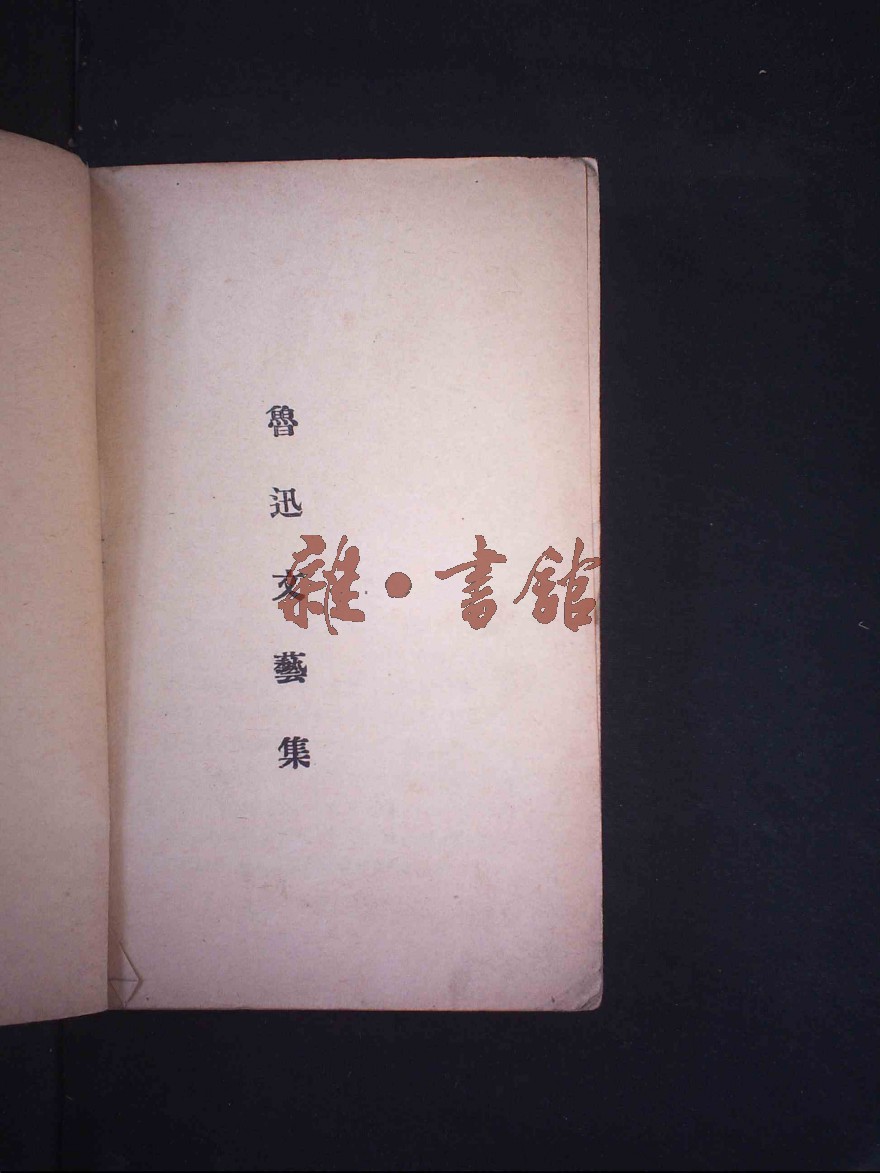 魯迅文藝集
雜·書館